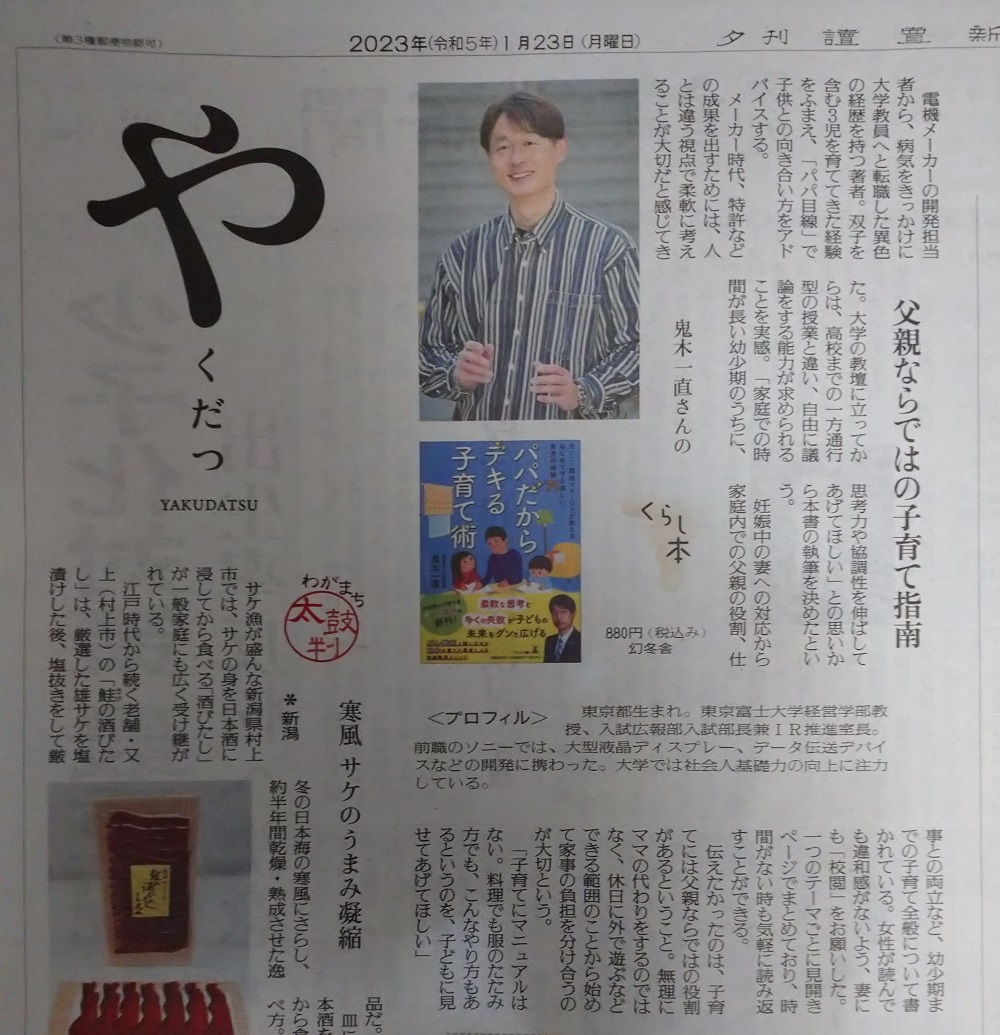 (第3種郵便物認可)
2023年(令和5年)1月23日(月曜日)
夕刊 讀賣 新
や
くだつ
YAKUDATSU
電機メーカーの開発担当
者から、病気をきっかけに
大学教員へと転職した異色
の経歴を持つ著者。双子を
含む3児を育ててきた経験
をふまえ、「パパ目線」で
子供との向き合い方をアド
バイスする。
メーカー時代、特許など
の成果を出すためには、人
とは違う視点で柔軟に考え
ることが大切だと感じてき
父親ならではの子育て指南
鬼木一直さんの
た。大学の教壇に立ってか
らは、高校までの一方通行
型の授業と違い、自由に議
論をする能力が求められる
ことを実感。「家庭での時
間が長い幼少期のうちに、
思考力や協調性を伸ばして
あげてほしい」との思いか
ら本書の執筆を決めたとい
う。
妊娠中の妻への対応から
家庭内での父親の役割、仕
くらし
本
パパだから
デキる
子育て術
鬼木一直
新刊!
柔軟な思考と
多くの失敗が子どもの
未来をグンと広げる
880円(税込み)
幻冬舎
<プロフィル> 東京都生まれ。東京富士大学経営学部教
授、入試広報部入試部長兼IR推進室長。
前職のソニーでは、大型液晶ディスプレー、データ伝送デバイ
スなどの開発に携わった。大学では社会人基礎力の向上に注力
している。
事との両立など、幼少期ま
での子育て全般について書
かれている。女性が読んで
も違和感がないよう、妻に
も「校閲」をお願いした。
一つのテーマごとに見開き
ページでまとめており、時
間がない時も気軽に読み返
すことができる。
伝えたかったのは、子育
てには父親ならではの役割
があるということ。無理に
ママの代わりをするのでは
なく、休日に外で遊ぶなど
できる範囲のことから始め
て家事の負担を分け合うの
が大切という。
「子育てにマニュアルは
ない。料理でも服のたたみ
方でも、こんなやり方もあ
るというのを、子どもに見
せてあげてほしい」
わがまち
太鼓
判
寒風 サケのうまみ凝縮
*新潟
サケ漁が盛んな新潟県村上
市では、サケの身を日本酒に
浸してから食べる「酒びたし」
が一般家庭にも広く受け継が
れている。
江戸時代から続く老舗・又
上(村上市)の「鮭の酒びた
し」は、厳選した雄サケを塩
漬けした後、塩抜きをして厳
冬の日本海の寒風にさらし、
約半年間乾燥・熟成させた逸
品だ。
皿に
本酒を
から食
べ方。